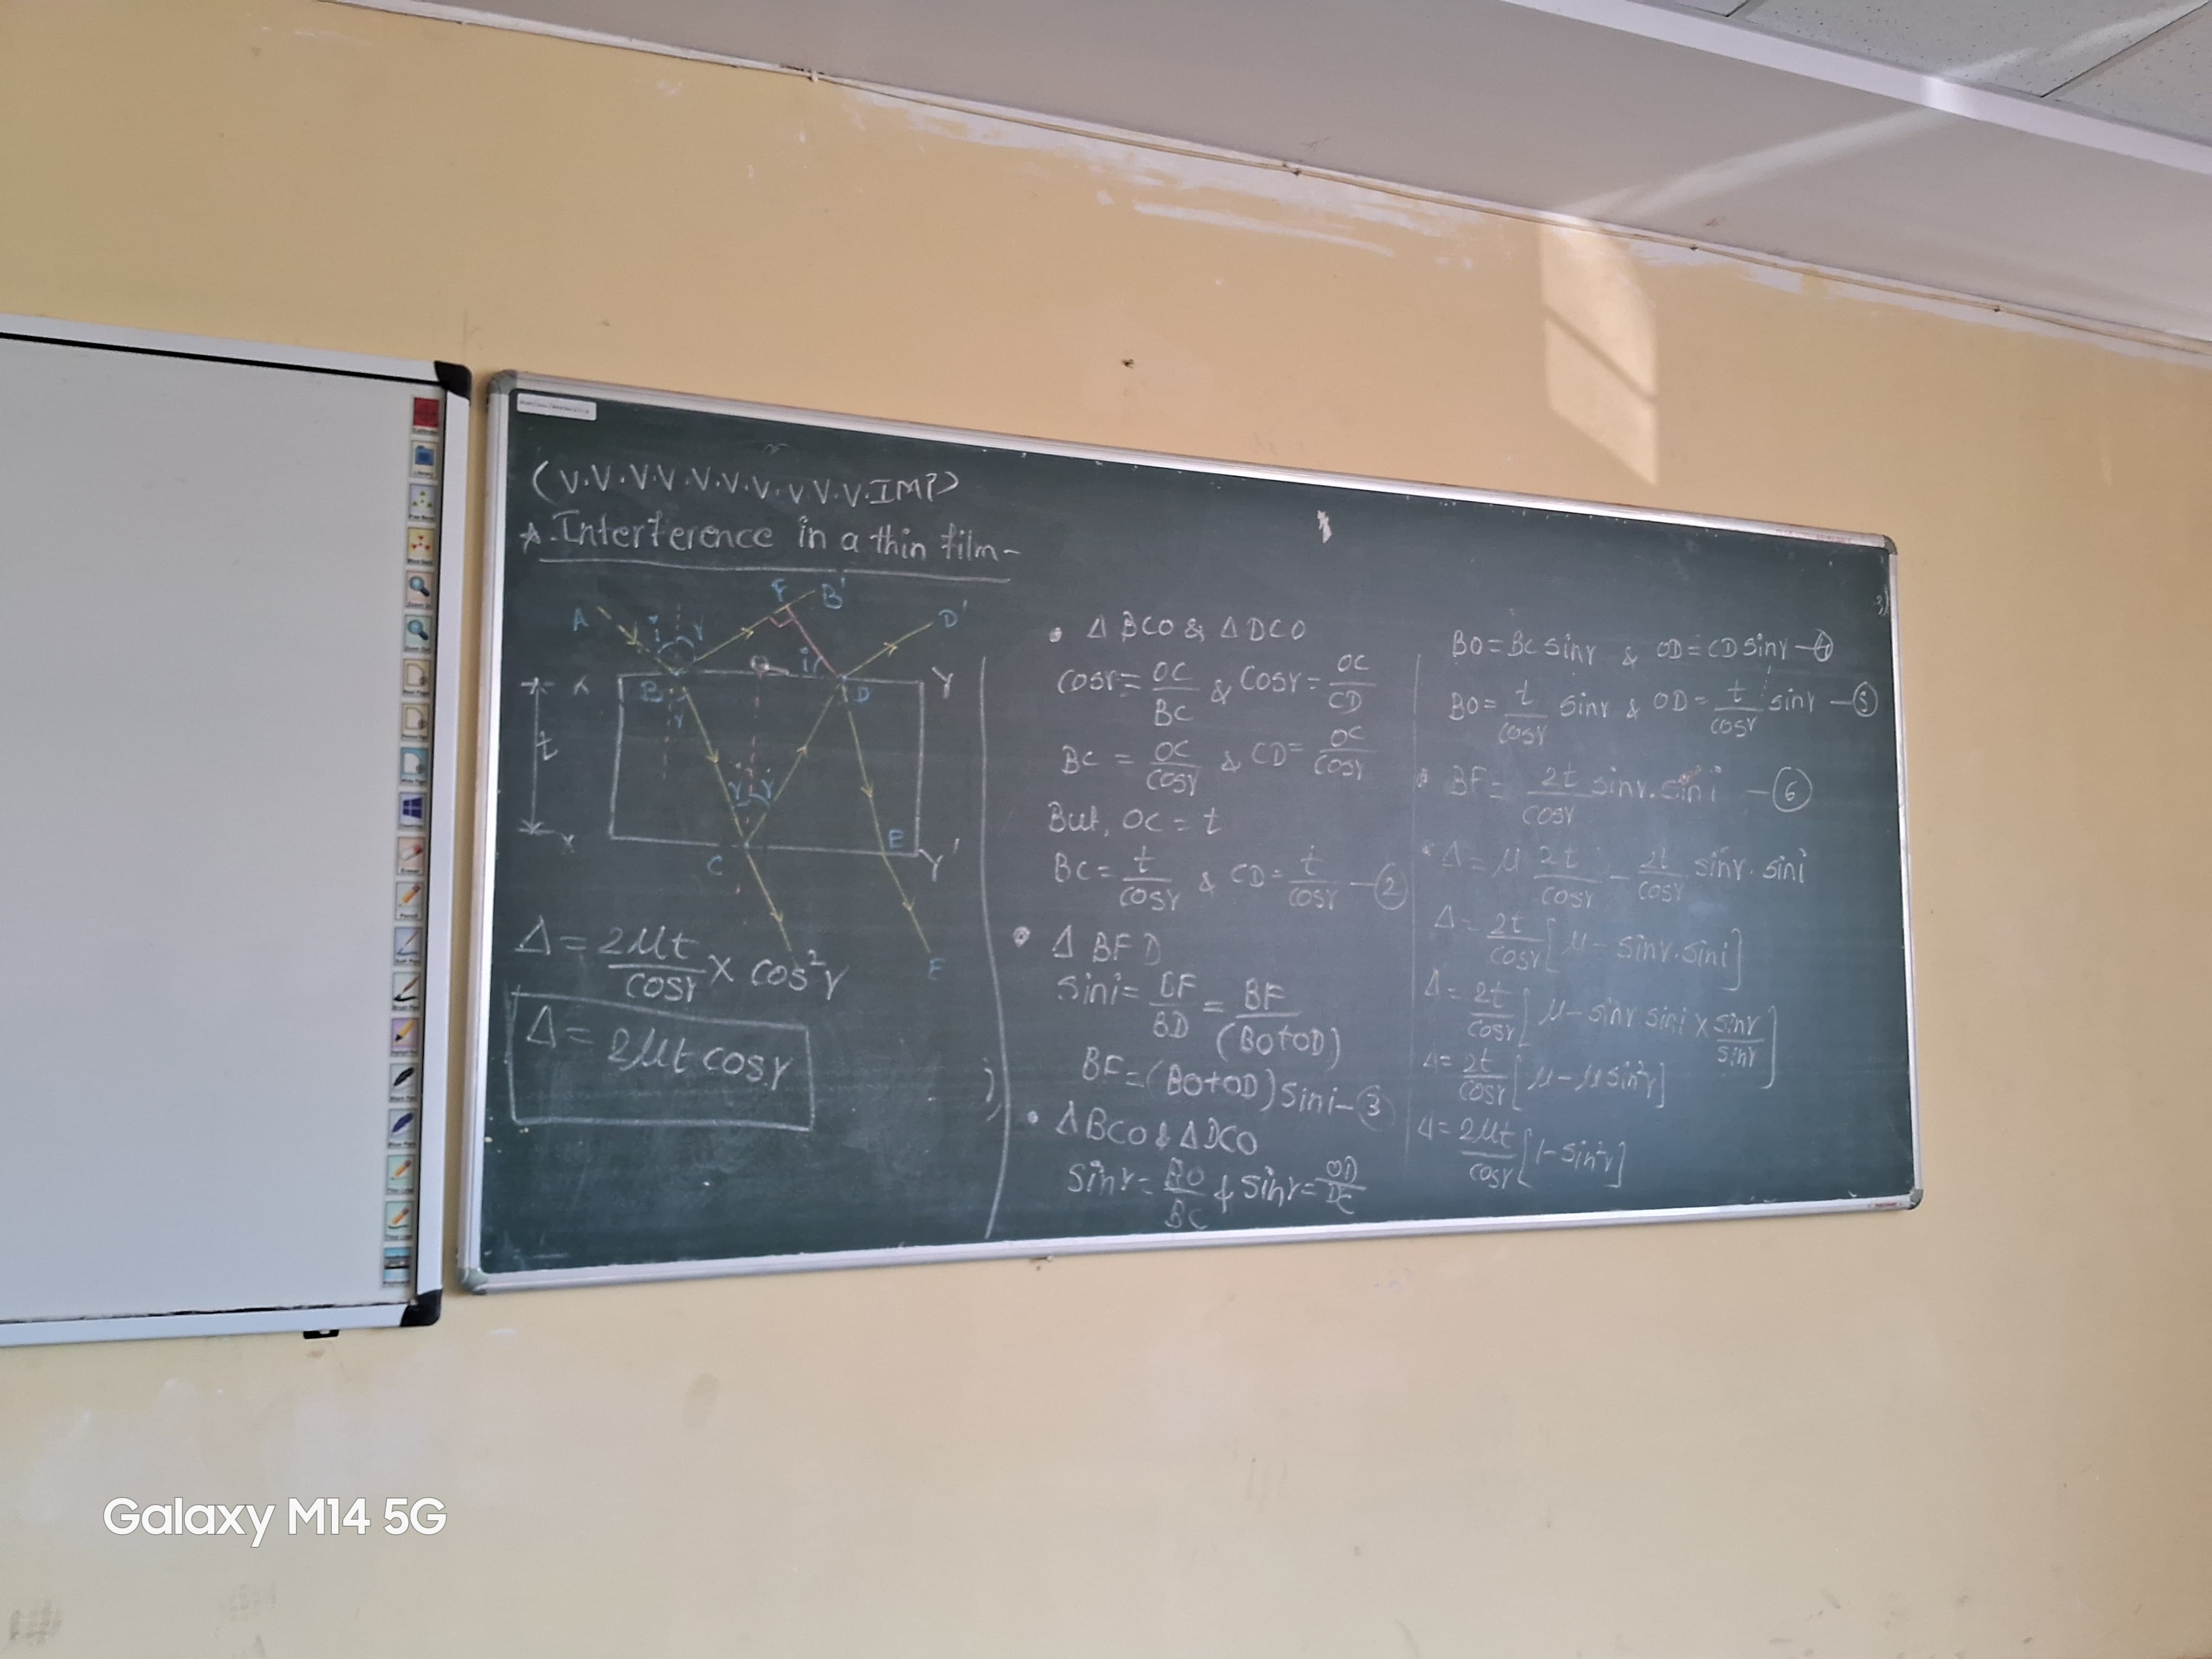 (V.V.V.V.V.V.V.V.V.V.IMP)
*.Interference in a thin film-
F B'
A i r D'
O i
X B D Y
r
t
r r
E
X C Y'
F
Δ = 2μt/cosr × cos²r
Δ = 2μt cosr
• Δ BCO & Δ DCO
cosr = OC/BC & cosr = OC/CD
BC = OC/cosr & CD = OC/cosr
But, OC = t
BC = t/cosr & CD = t/cosr —②
• Δ BFD
sini = BF/BD = BF/(BO+OD)
BF = (BO+OD) sini —③
• Δ BCO & Δ DCO
sinr = BO/BC & sinr = OD/DC
BO = BC sinr & OD = CD sinr —④
BO = t/cosr sinr & OD = t/cosr sinr —⑤
• BF = 2t/cosr sinr.sini —⑥
• Δ = μ 2t/cosr – 2t/cosr sinr.sini
Δ = 2t/cosr [μ – sinr.sini]
Δ = 2t/cosr [μ – sinr.sini × sinr/sinr]
Δ = 2t/cosr [μ – μ sin²r]
Δ = 2μt/cosr [1 – sin²r]
Galaxy M14 5G